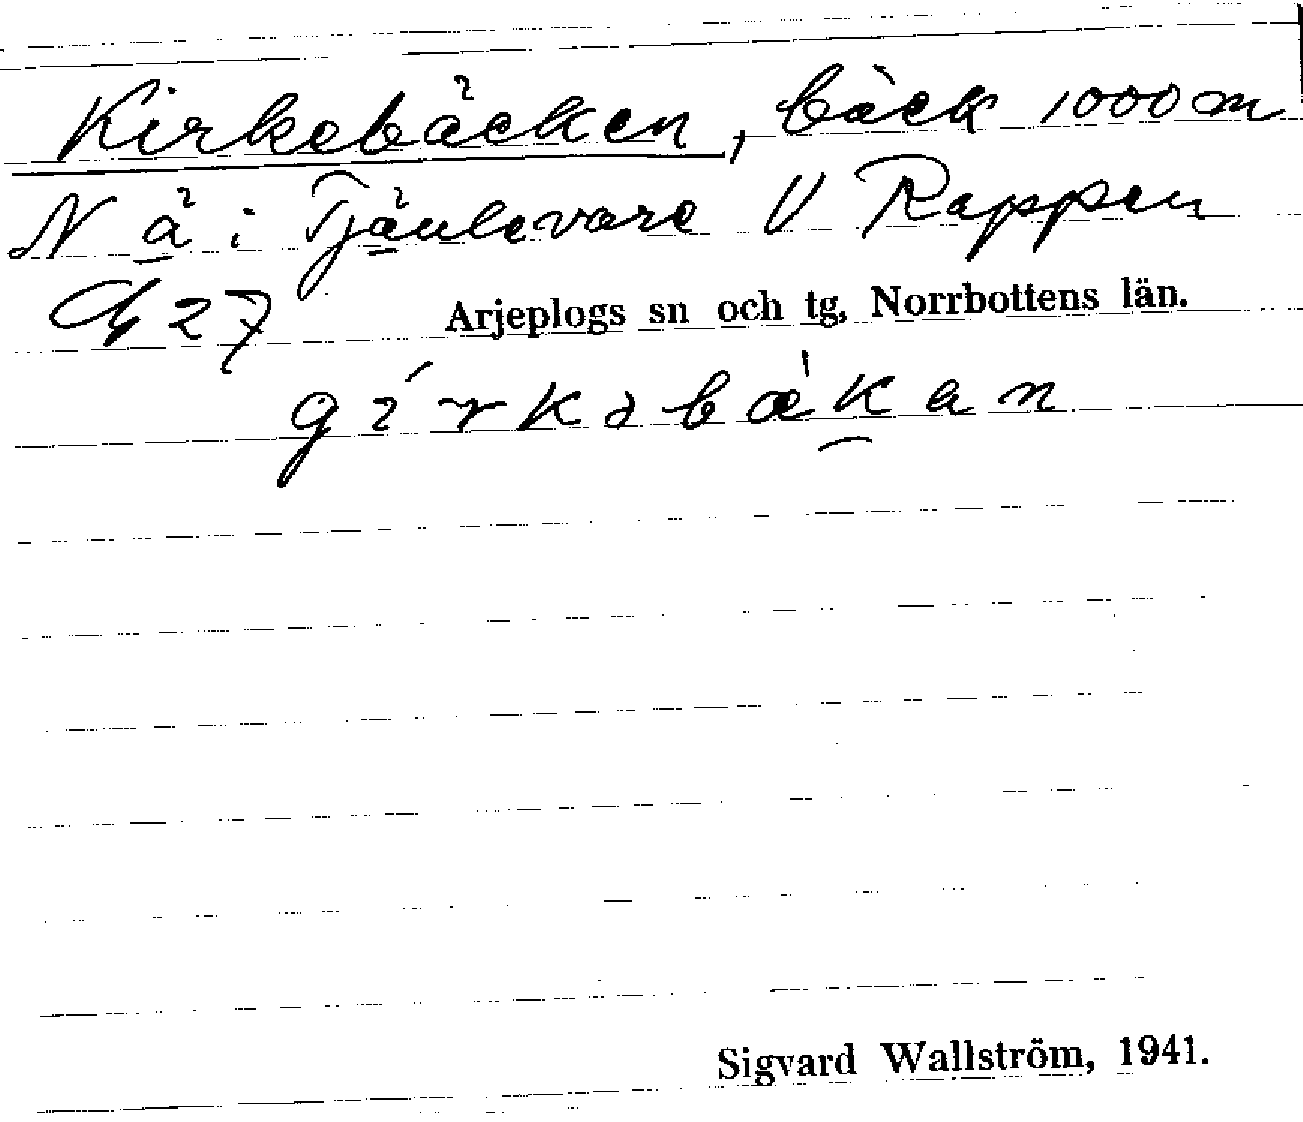 Kirkebäcken, bäck 1000 m
N ä i Tjäulevare V Rappen
27
Arjeplogs sn och tg, Norrbottens län.
gírkəbæ̀kan
Sigvard Wallström, 1941.